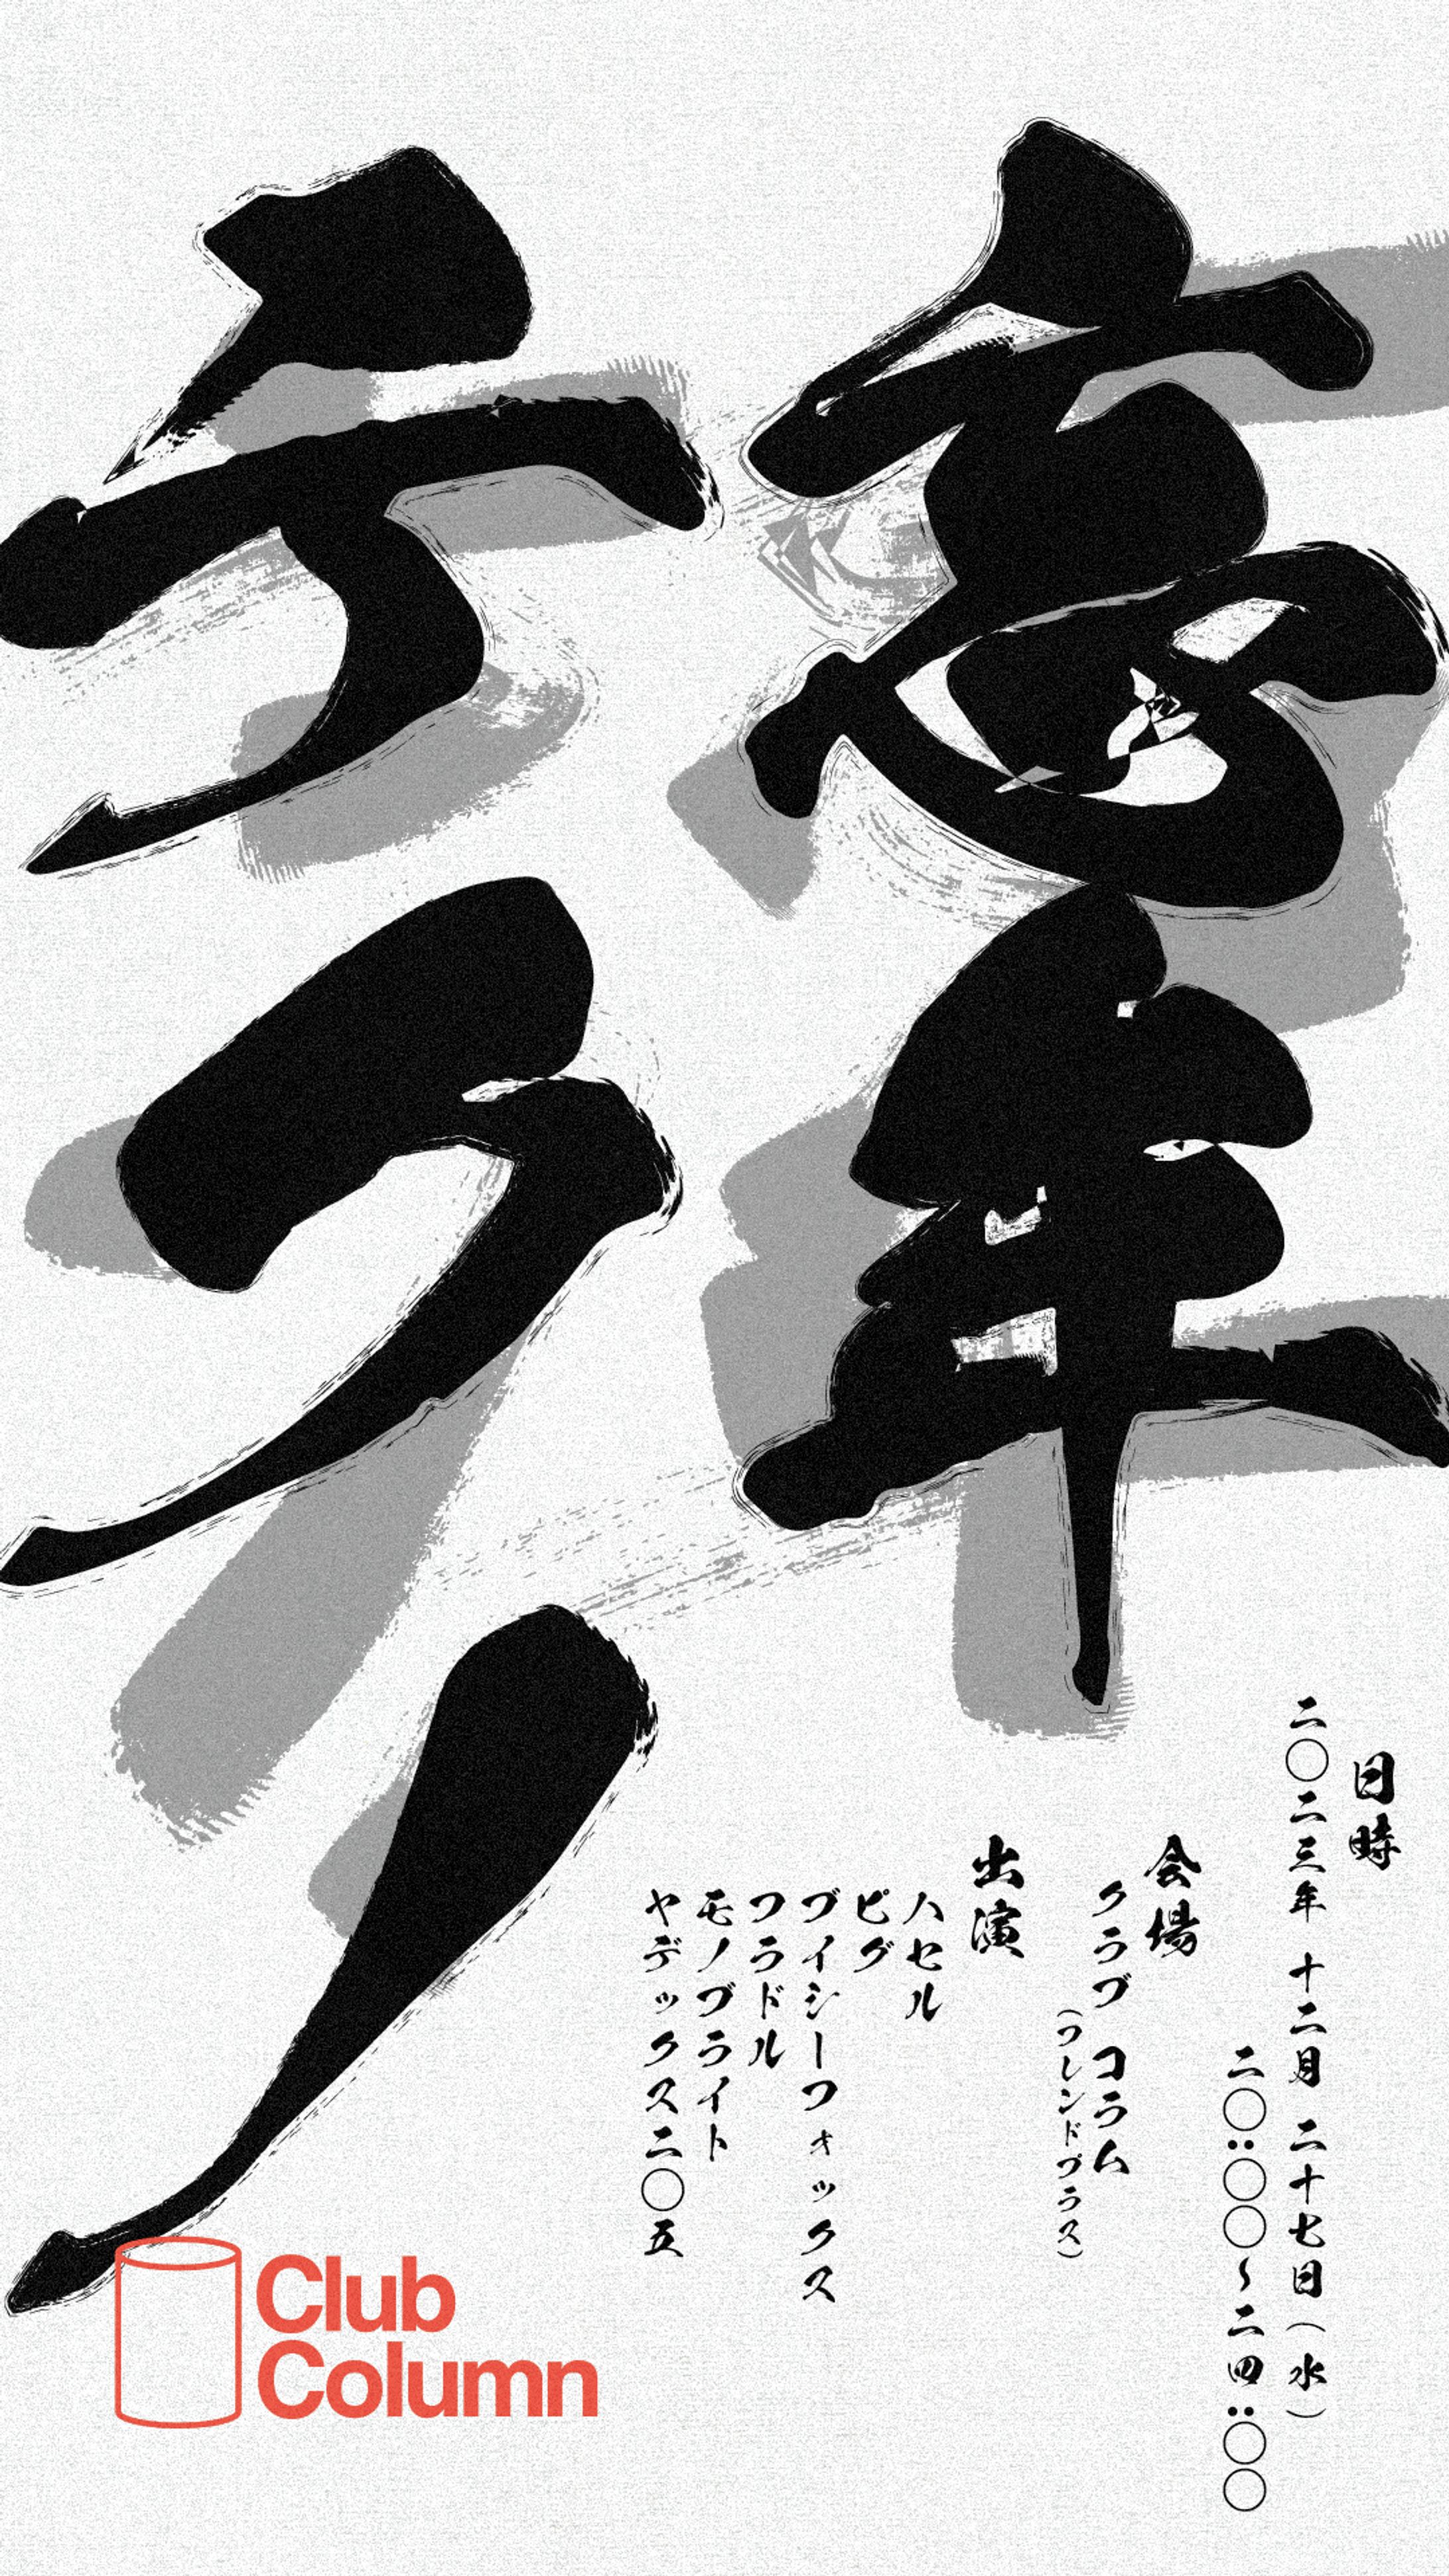 忘年
テクノ
日時
二〇二三年 十二月 二十七日(水)
二〇:〇〇~二四:〇〇
会場
クラブ コラム
(フレンドプラス)
出演
ハセル
ピグ
ブイシーフォックス
フラドル
モノブライト
ヤデックス二〇五
Club
Column